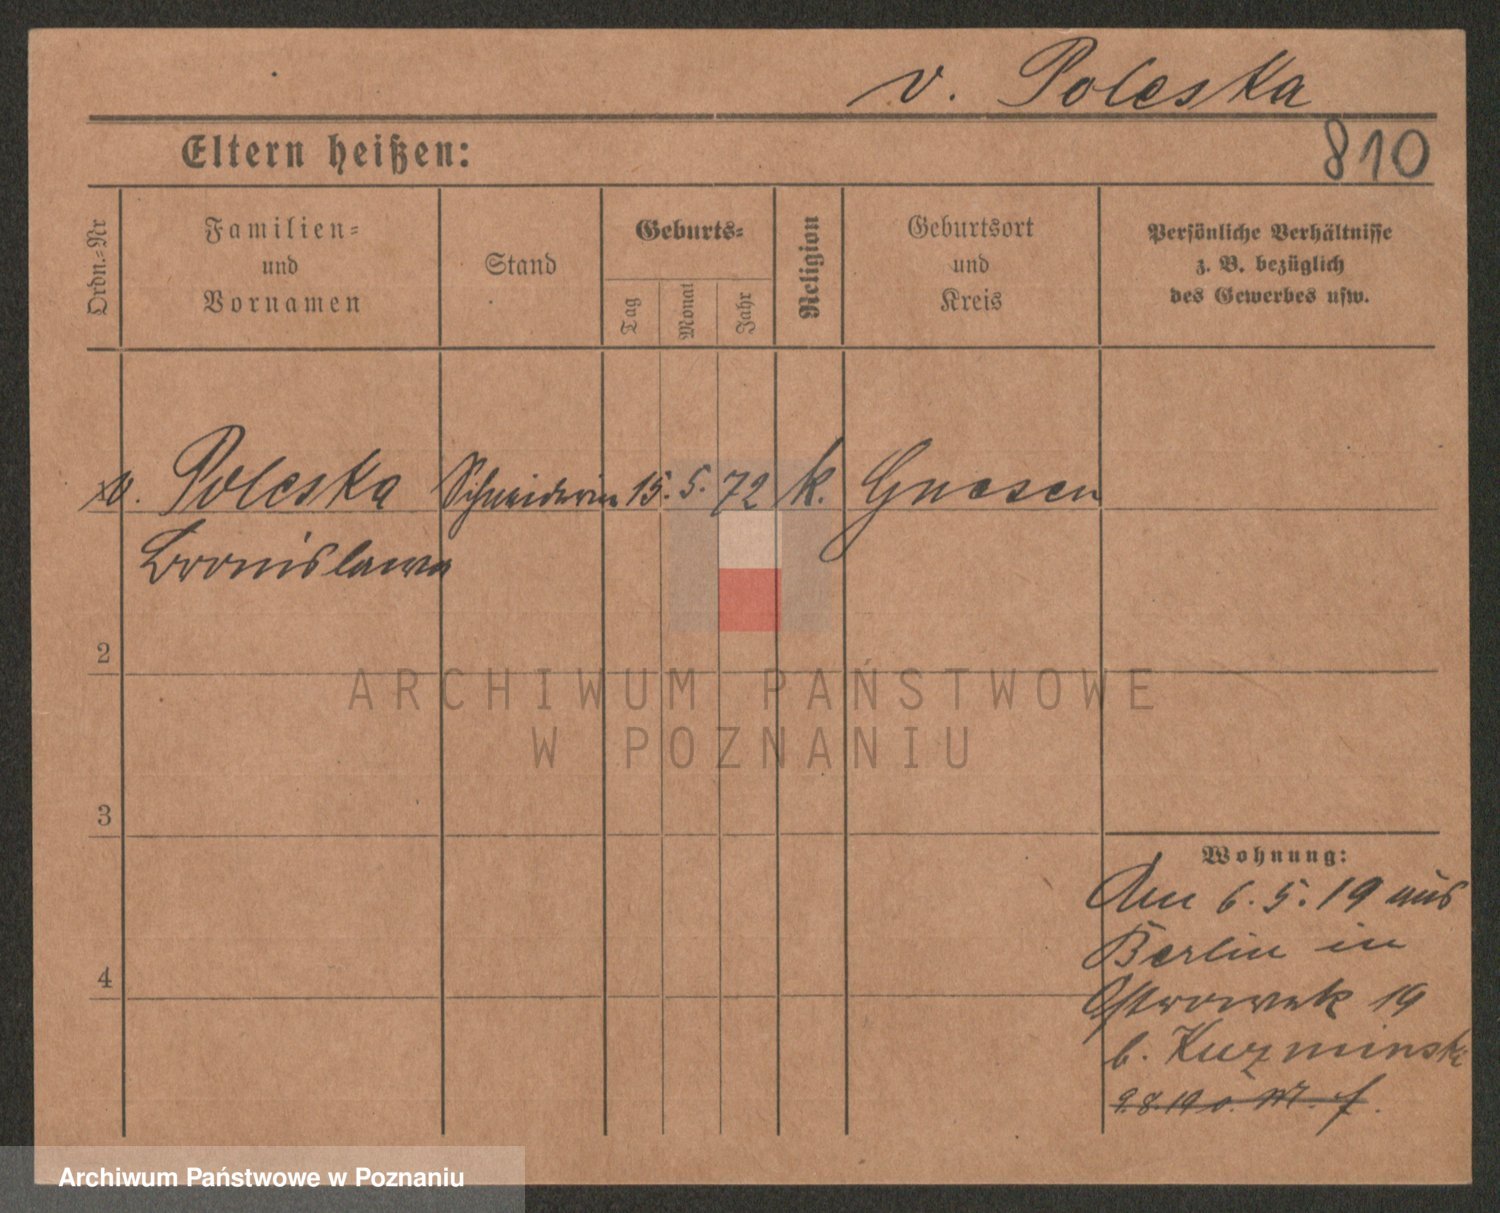 v. Poleska
Eltern heißen:
810
Ordn.=Nr
Familien=
und
Vornamen
Stand
Geburts=
Tag
Monat
Jahr
Religion
Geburtsort
und
Kreis
Persönliche Verhältnisse
z. B. bezüglich
des Gewerbes usw.
v. Poleska Schneiderin 15. 5. 72 k. Gnesen
Bronislawa
2
3
4
ARCHIWUM PAŃSTWOWE
W POZNANIU
Wohnung:
Am 6. 5. 19 aus
Berlin in
Ostrowek 19
b. Kuzminski
9.8.19
Archiwum Państwowe w Poznaniu